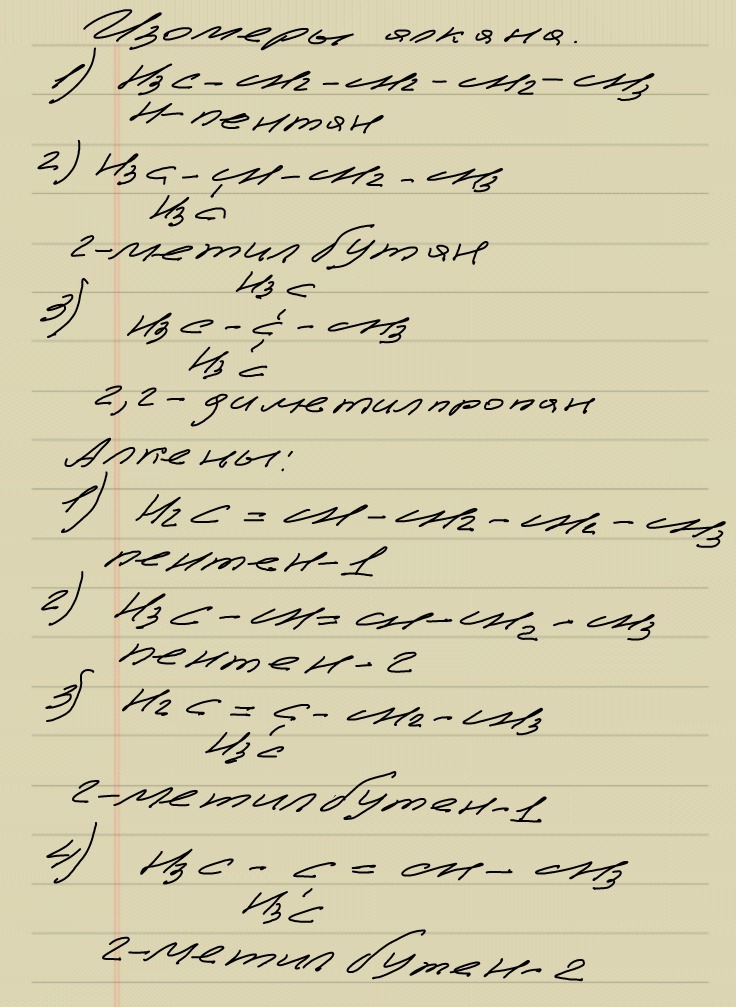 Изомеры алкана.
1) H3C - CH2 - CH2 - CH2 - CH3
н-пентан
2) H3C - CH - CH2 - CH3
H3C
2-метил бутан
H3C
3) H3C - C - CH3
H3C
2,2 - диметилпропан
Алкены:
1) H2C = CH - CH2 - CH2 - CH3
пентен-1
2) H3C - CH = CH - CH2 - CH3
пентен-2
3) H2C = C - CH2 - CH3
H3C
2-метилбутен-1
4) H3C - C = CH - CH3
H3C
2-метил бутен-2